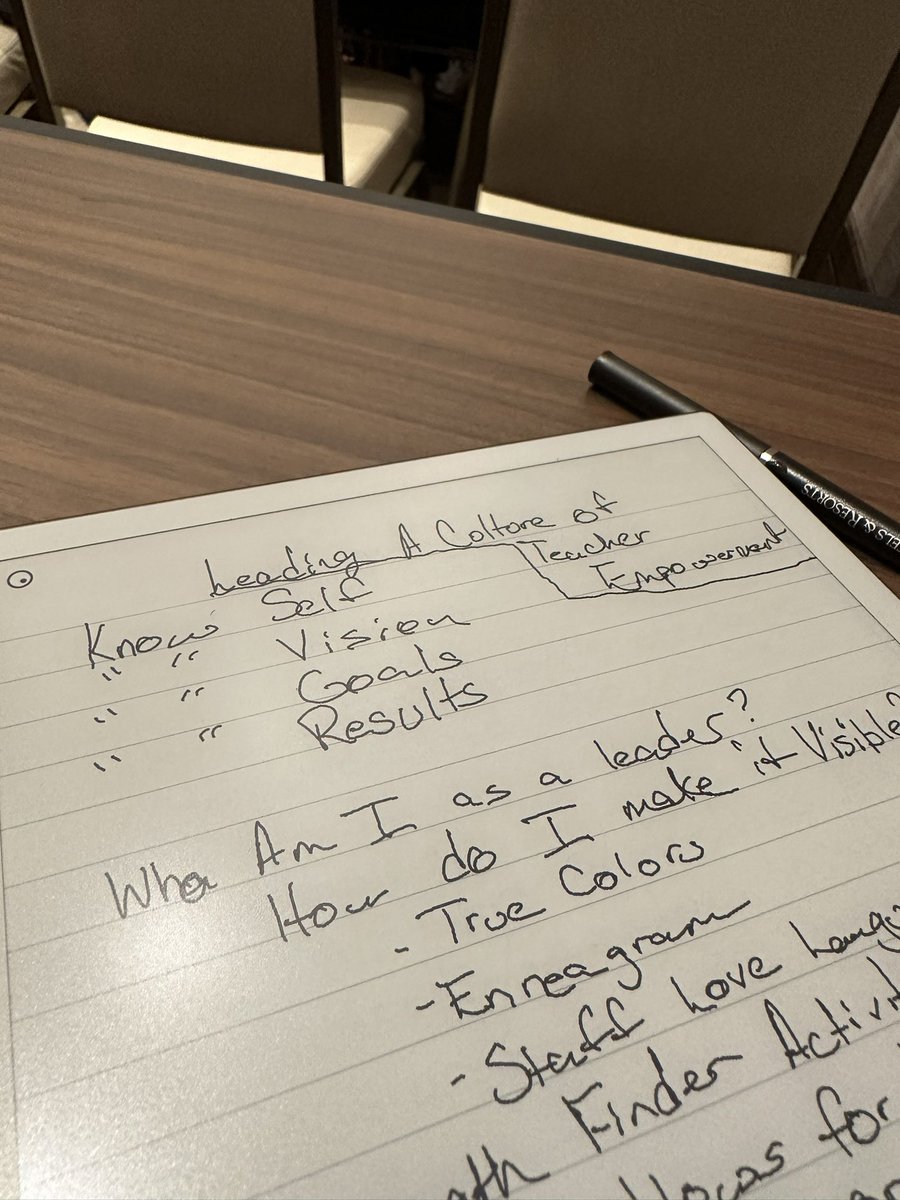 Leading A Coltore of
Teacher
Empowerment
Know Self
" " Vision
" " Goals
" " Results
Who Am I as a leader?
How do I make it Visible?
- True Colors
- Enneagram
- Staff Love
Finder
for
ELS & RESORTS